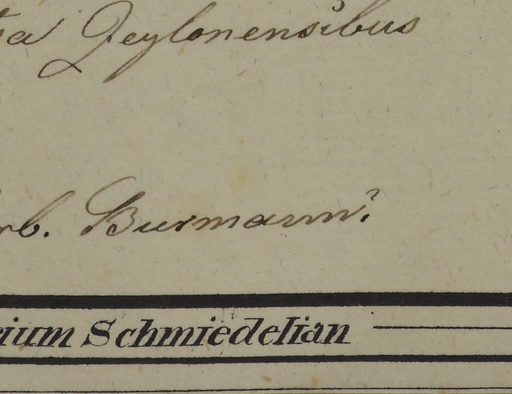 ta Zeylonensibus
rb. Burmann?
rium Schmiedelian